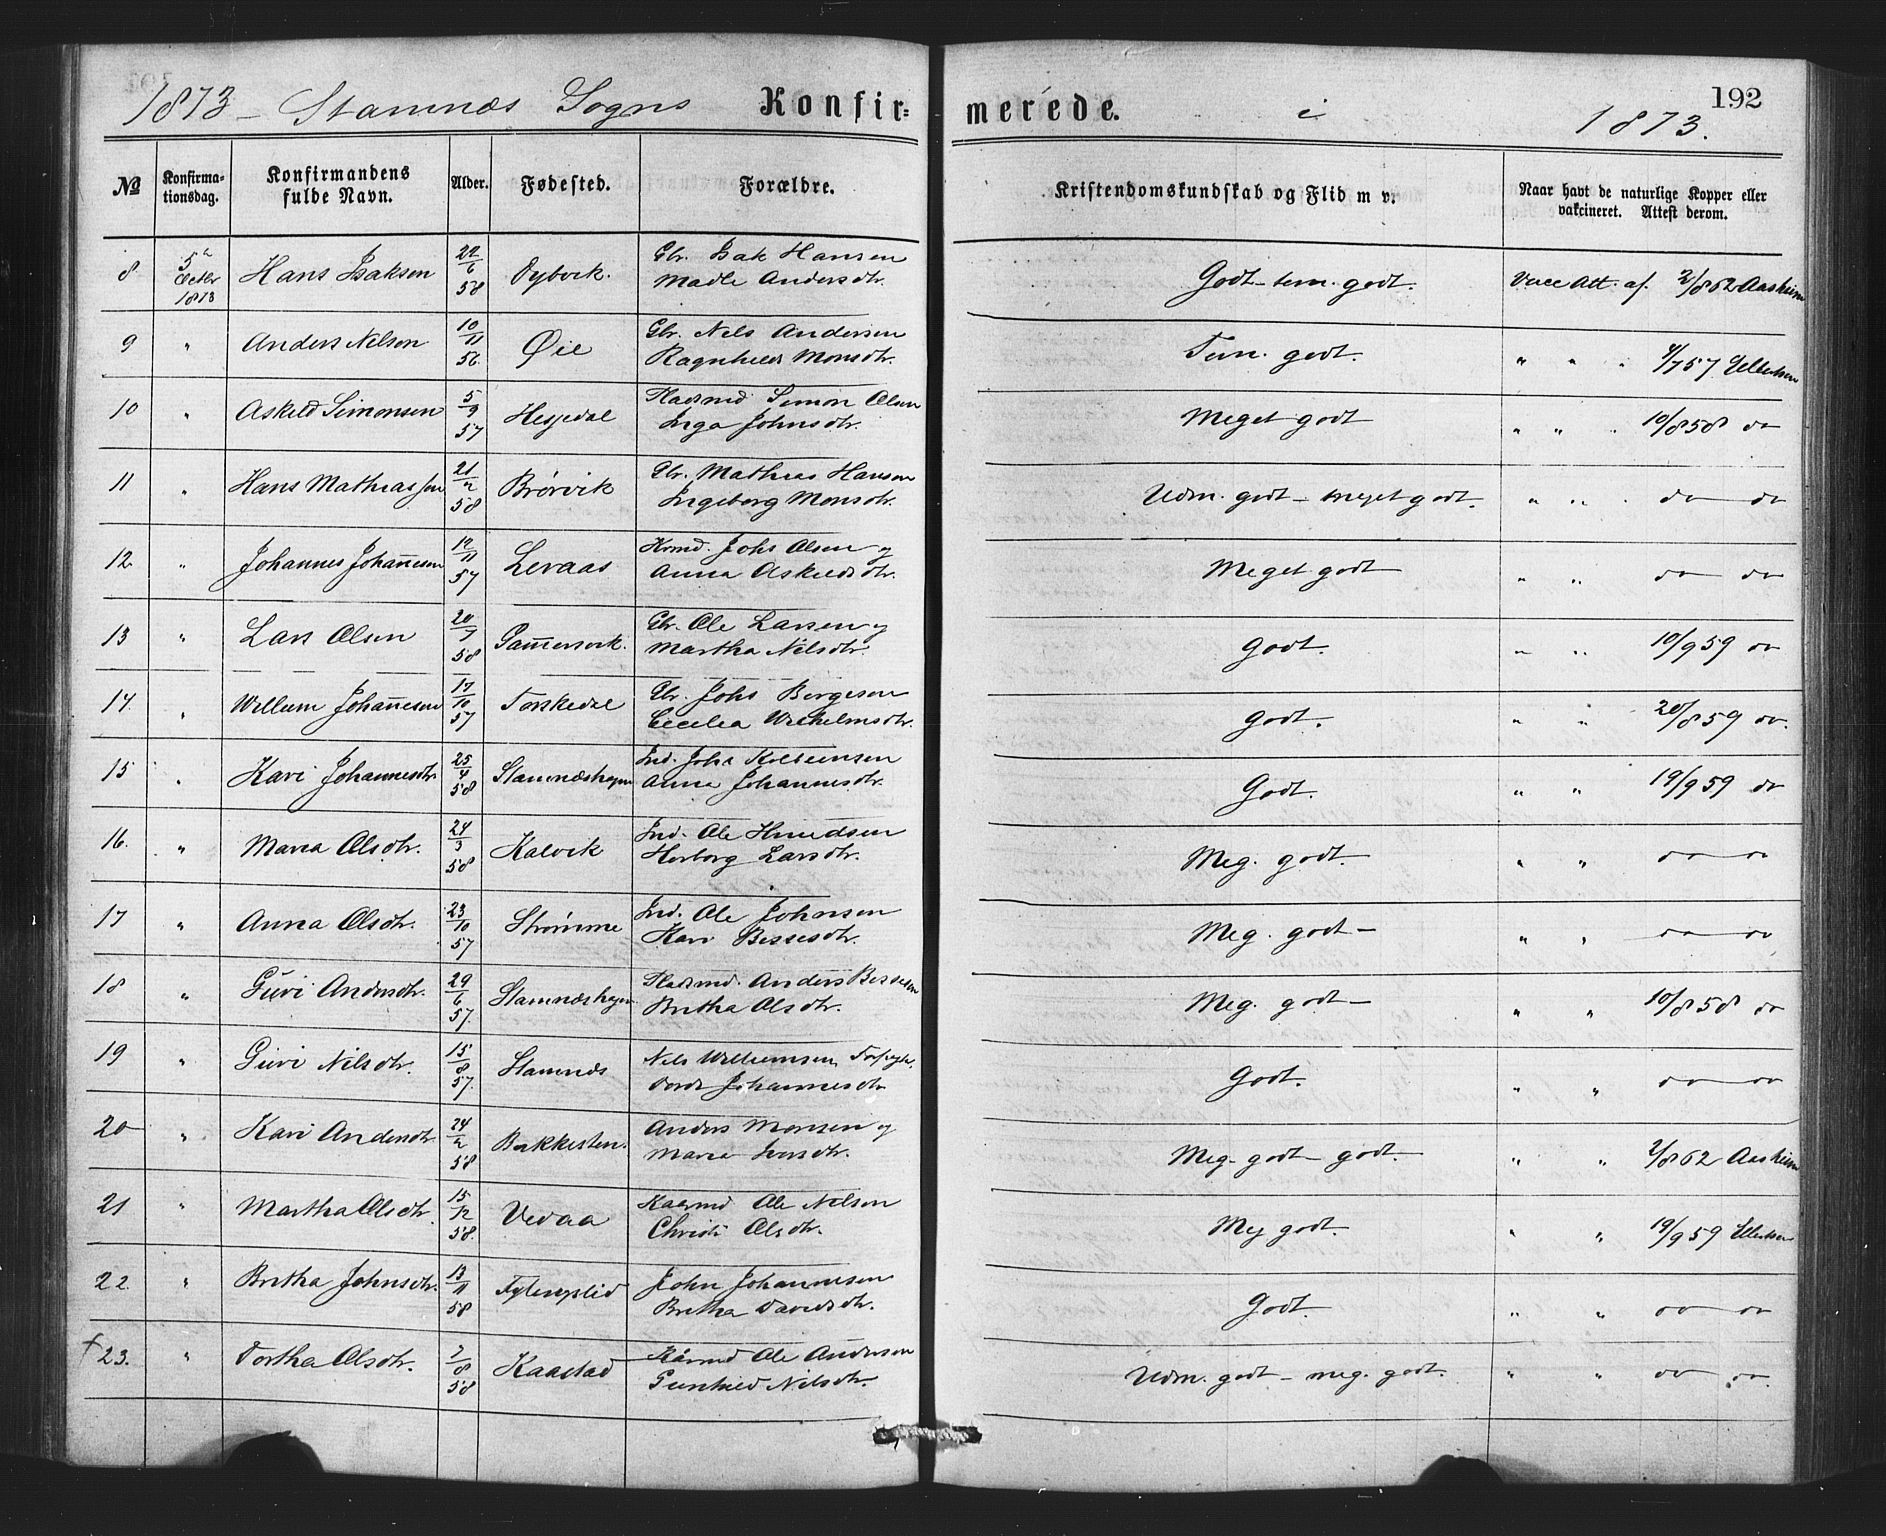 1873 - Stamnæs Sogns Konfirmerede. i 1873.
192
№ Konfirmationsdag. Konfirmandens fulde Navn. Alder. Fødested. Forældre. Kristendomskundskab og Flid m v. Naar havt de naturlige Kopper eller vakcineret. Attest derom.
8 5te Octbr 1873 Hans Isaksen 22/6 58 Dybvik. Gbr. Isak Hansen Godt - tem. godt. Vacc Att. af. 2/8 62 Aasheim
Madle Andersdtr.
9 " Anders Nelson 10/11 56. Øie Gbr. Nels Andersen Tem. godt. " " " 4/7 57 Ellertsen
Ragnhild Monsdtr.
10 " Askeld Simonsen 5/9 57 Hesjedal Pladsmd Simon Olsen Meget godt " " " 10/8 58 do
Inga Johnsdtr.
11 " Hans Mathiassen 21/2 58 Brørvik Gbr. Mathias Hansen Udm. godt - meget godt. " " " do do
Ingeborg Monsdtr.
12 " Johannes Johannesen 12/11 57 Levaas Kmd. Johs Olsen og Meget godt " " do do
Anna Askeldsdtr.
13 " Lars Olsen 20/7 58 Gammersvik. Gbr. Ole Larsen og Godt. " " 10/9 59 do
Martha Nilsdtr.
14. " Willum Johannesen 17/10 57 Torskedal Gbr. Johs Borgesen Godt. " " 20/8 59 do.
Cecelia Wilhelmsdtr.
15 " Kari Johannesdtr 25/4 58 Stamneshagen Ind. Johs Anna Johannesdtr. Godt. " " 19/9 59 do
16. " Maria Olsdtr. 24/3 58 Kalvik Ind. Ole Knudsen Meg. godt. " " do do
Herborg Larsdtr.
17 " Anna Olsdtr. 23/10 57 Strømme Ind. Ole Johnsen Meg. godt - " " do do
Kari Bessesdtr.
18 " Guri Andersdtr. 29/6 57. Stamneshagen Pladsmd. Anders Bessesen Meg. godt - " " 10/8 58 do
Britha Olsdtr.
19 " Guri Nilsdtr. 15/8 57. Stamnæs Nils Willumsen Godt. " " do do
Johannesdtr
20 " Kari Andersdtr 24/2 58 Bakkesten. Anders Monsen og Meg. godt - godt. " " 2/8 62 Aasheim
Maria Iversdtr.
21 " Martha Olsdtr. 15/12 58. Vedaa Kaarmd Ole Nilson Meg godt. " " 19/9 59 Ellertsen
Christi Olsdtr.
22. " Britha Johnsdtr. 13/11 58 John Johannesen Godt " " do do
Britha Davidsdtr.
+ 23. " Dortha Olsdtr. 2/8 58 Kaastad Kårmd Ole Andersen Udm. godt - meg. godt. " " do do.
Gunhild Nilsdtr.